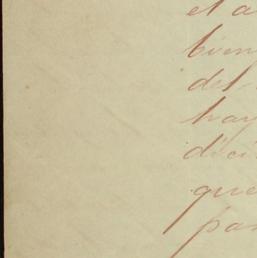 et a
bien
del
hay
deci
que
par